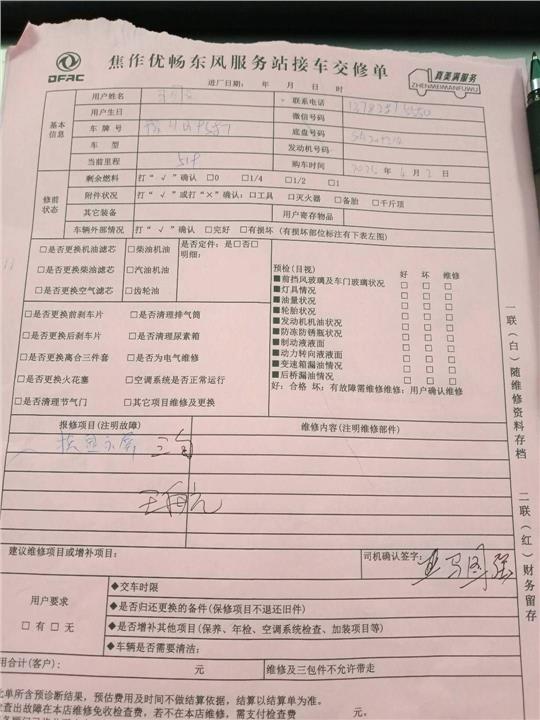 DFAC
焦作优畅东风服务站接车交修单
真美满服务
ZHENMEIMANFUWU
进厂日期: 年 月 日 时
基本信息
用户姓名
联系电话
用户生日
微信号码
车牌号
底盘号码
车型
发动机号码
当前里程 519
购车时间 2025年 4月 2日
修前状态
剩余燃料 打“√”确认 □0 □1/4 □1/2 □1
附件状况 打“√”或打“×”确认:□工具 □灭火器 □备胎 □千斤顶
其它装备 用户寄存物品
车辆外部情况 打“√”确认 □完好 □有损坏(有损坏部位标注有下表左图)
□是否更换机油滤芯 □柴油机油 是否定件:是□否□
明细:
□是否更换柴油滤芯 □汽油机油
□是否更换空气滤芯 □齿轮油
□是否更换前刹车片 □是否清理排气筒
□是否更换后刹车片 □是否清理尿素箱
□是否更换离合三件套 □是否为电气维修
□是否更换火花塞 □空调系统是否正常运行
□是否清理节气门 □其它项目维修及更换
预检(目视) 好 坏 维修
■前挡风玻璃及车门玻璃状况 □ □ □
■灯具情况 □ □ □
■油量状况 □ □ □
■轮胎状况 □ □ □
■发动机机油状况 □ □ □
■防冻防锈瓶状况 □ □ □
■制动液液面 □ □ □
■动力转向液液面 □ □ □
■变速箱漏油情况 □ □ □
■后桥漏油情况 □ □ □
好:合格 坏:有故障需维修维修:用户确认维修
报修项目(注明故障)
维修内容(注明维修部件)
换显示屏
建议维修项目或增补项目:
司机确认签字:
用户要求
□有□无
◆交车时限
◆是否归还更换的备件(保修项目不退还旧件)
◆是否增补其他项目(保养、年检、空调系统检查、加装项目等)
◆车辆是否需要清洁:
用合计(客户): 元
维修及三包件不允许带走
此单所含预诊断结果,预估费用及时间不做结算依据,结算以结算单为准。
检查出故障在本店维修免收检查费,若不在本店维修,需支付检查费 元。
一联(白)随维修资料存档
二联(红)财务留存